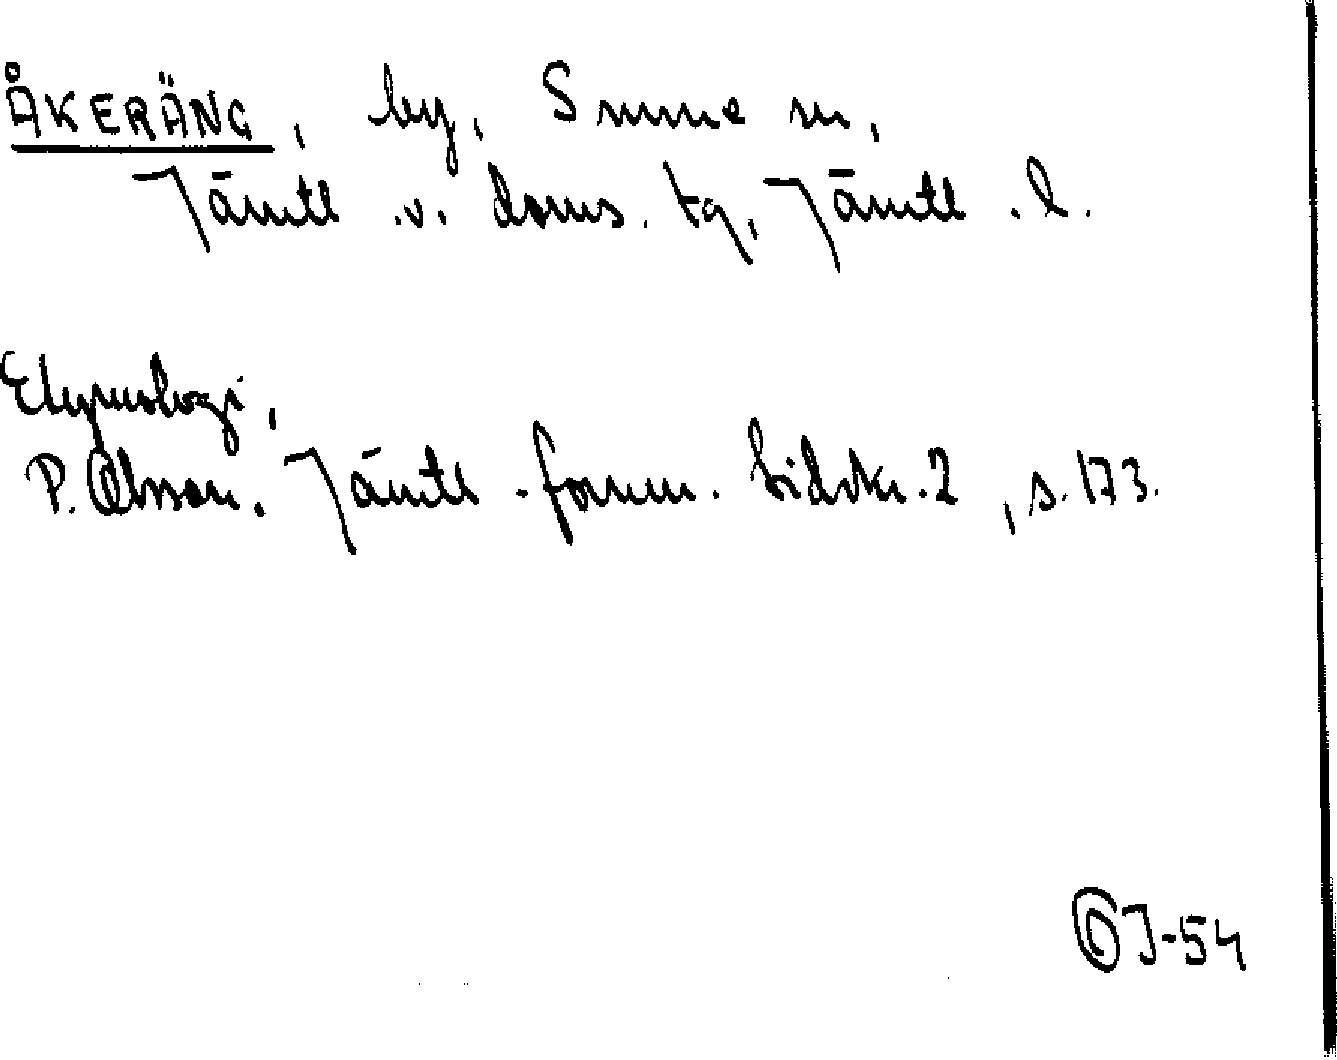 ÅKERÄNG, by, Sunne sn,
Jämtl. v. doms. tg, Jämtl. l.
Etymologi,
P. Olsson, Jämtl. fornm. tidskr. 2, s. 173.
ÖJ-54